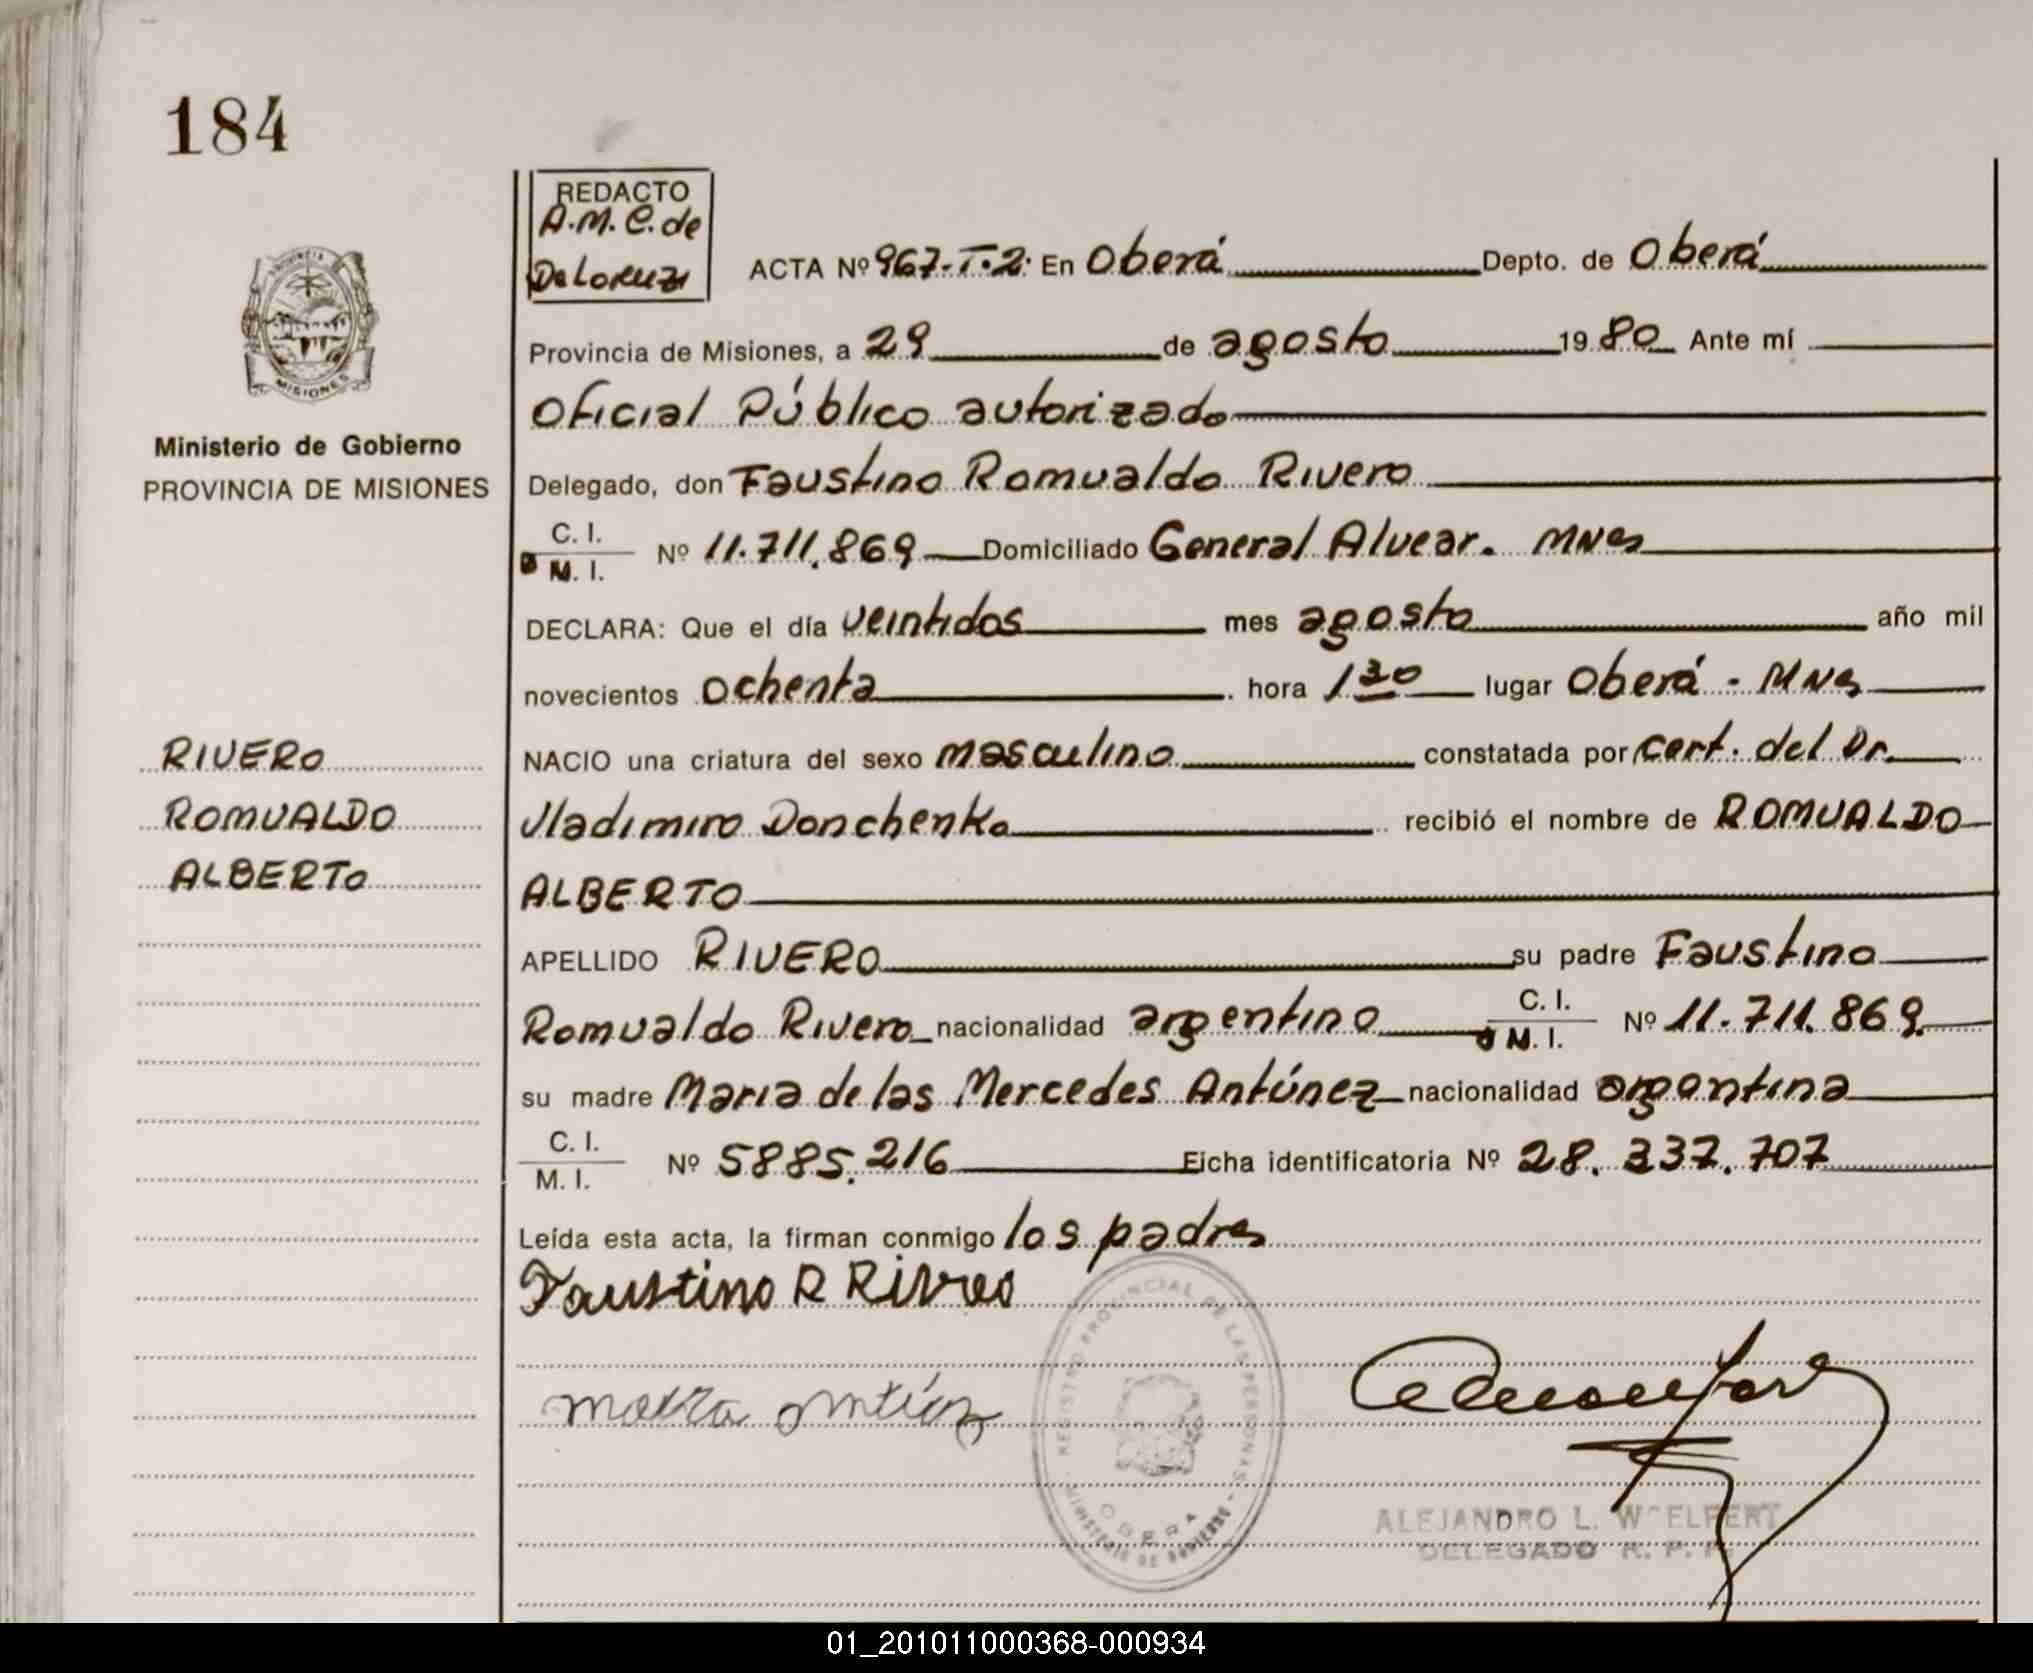 184
REDACTO
A.M.C. de
De Loruzi
ACTA Nº 967-T.2. En Oberá Depto. de Oberá
Provincia de Misiones, a 29 de agosto 1980 Ante mí
Oficial Público autorizado
Ministerio de Gobierno
PROVINCIA DE MISIONES
Delegado, don Faustino Romualdo Rivero
C. I.
M. I. Nº 11.711.869 Domiciliado General Alvear. MNes
DECLARA: Que el día veintidos mes agosto año mil
novecientos ochenta hora 1 30 lugar Oberá - MNes
RIVERO
ROMUALDO
ALBERTO
NACIO una criatura del sexo masculino constatada por cert. del Dr.
Vladimiro Donchenko recibió el nombre de ROMUALDO
ALBERTO
APELLIDO RIVERO su padre Faustino
Romualdo Rivero nacionalidad argentino C. I.
M. I. Nº 11.711.869
su madre Maria de las Mercedes Antúnez nacionalidad argentina
C. I.
M. I. Nº 5885.216 Ficha identificatoria Nº 28.337.707
Leída esta acta, la firman conmigo los padres
Faustino R Rivero
REGISTRO PROVINCIAL DE LAS PERSONAS
OBERA
MINISTERIO DE GOBIERNO
ALEJANDRO L. WOELFERT
DELEGADO R. P. P.
01_201011000368-000934